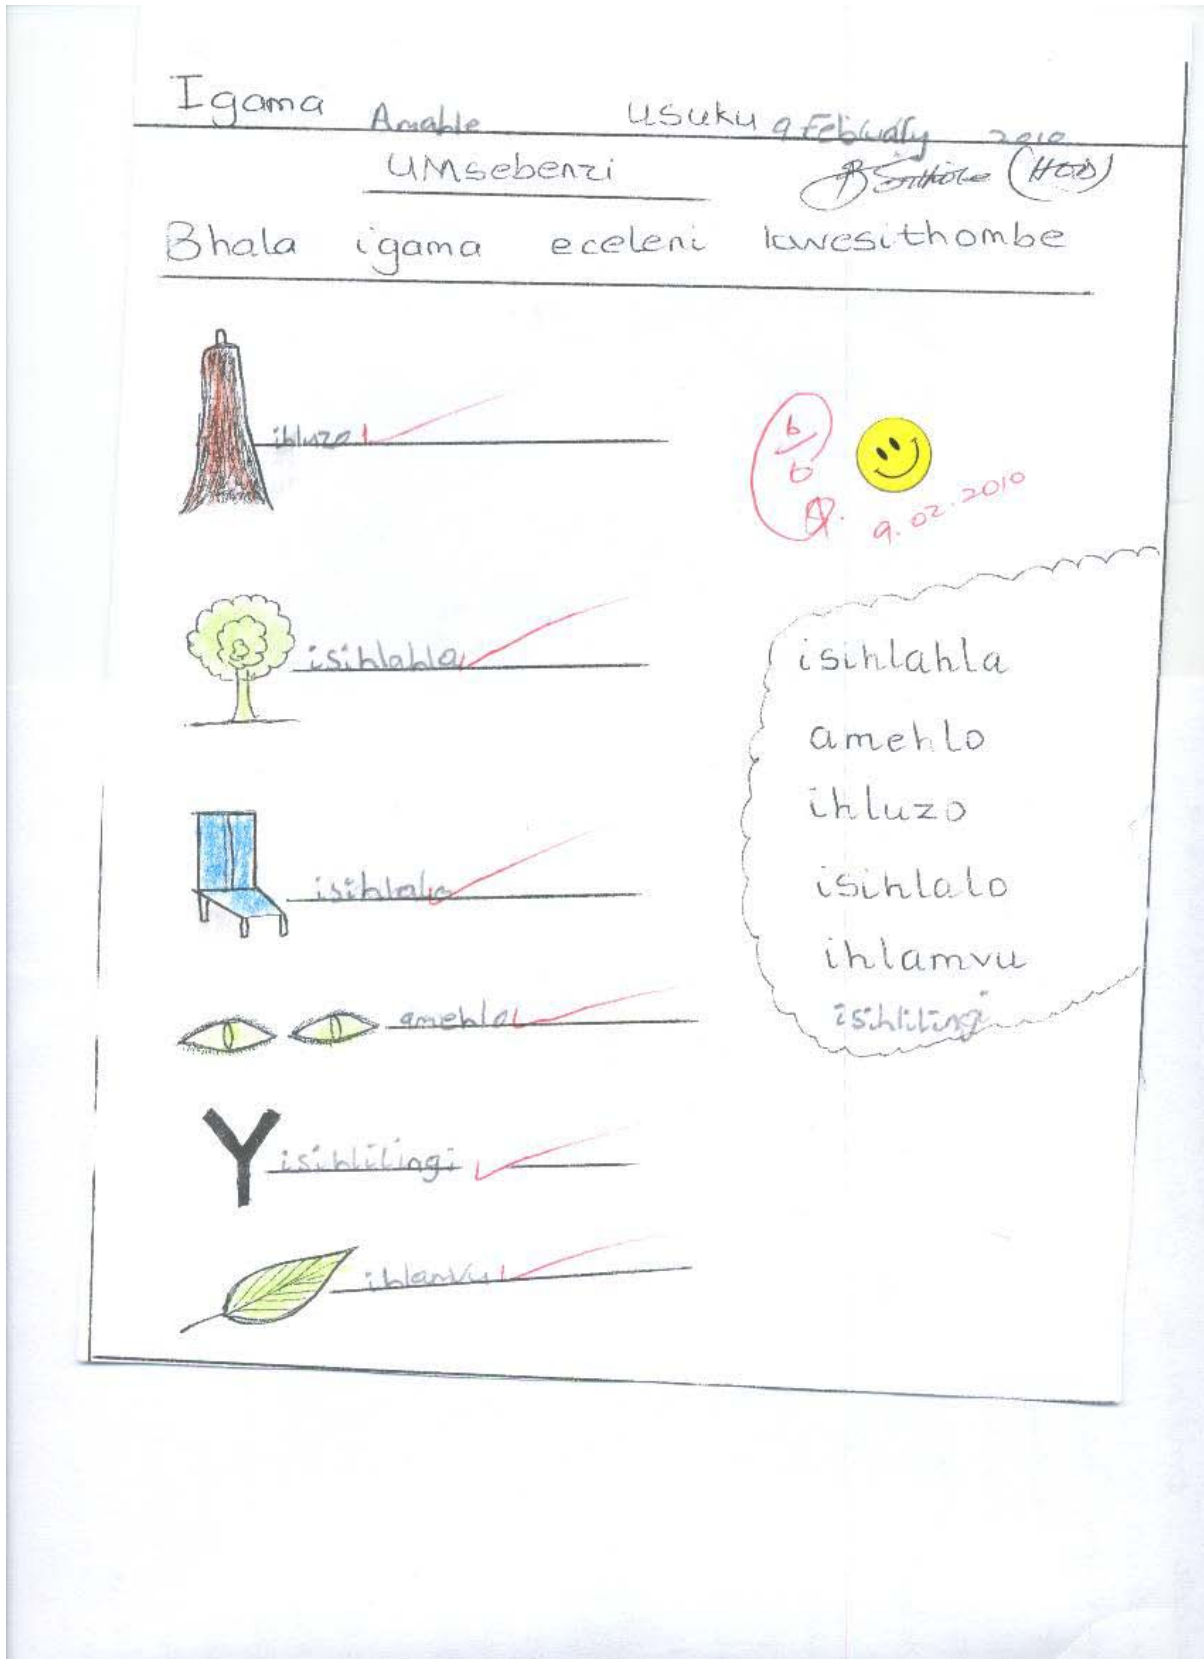 Igama Amahle usuku 9 February 2010
UMsebenzi (HOD)
Bhala igama eceleni kwesithombe
ihluzo
6/6
9.02.2010
isihlahla
isihlalo
amehlo
isihlilingi
ihlamvu
isihlahla
amehlo
ihluzo
isihlalo
ihlamvu
isihlilingi